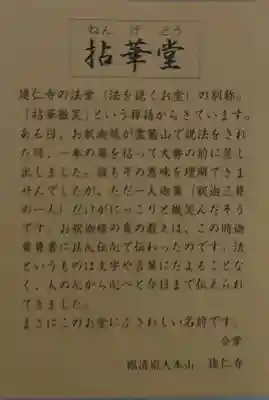 ねんげどう
拈華堂
建仁寺の法堂（法を説くお堂）の別称。
「拈華微笑」という禅語からきています。
ある日、お釈迦様が霊鷲山で説法をされ
た時、一本の華を拈って大勢の前に差し
出しました。誰もその意味を理解できま
せんでしたが、ただ一人迦葉（釈迦三尊
の一人）だけがにっこりと微笑んだそう
です。お釈迦様の真の教えは、この時迦
葉尊者に以心伝心で伝わったのです。法
というものは文字や言葉にたよることな
く、人の心から心へと今日まで伝えられ
てきました。
まさにこのお堂にふさわしい名前です。
合掌
臨済宗大本山　建仁寺